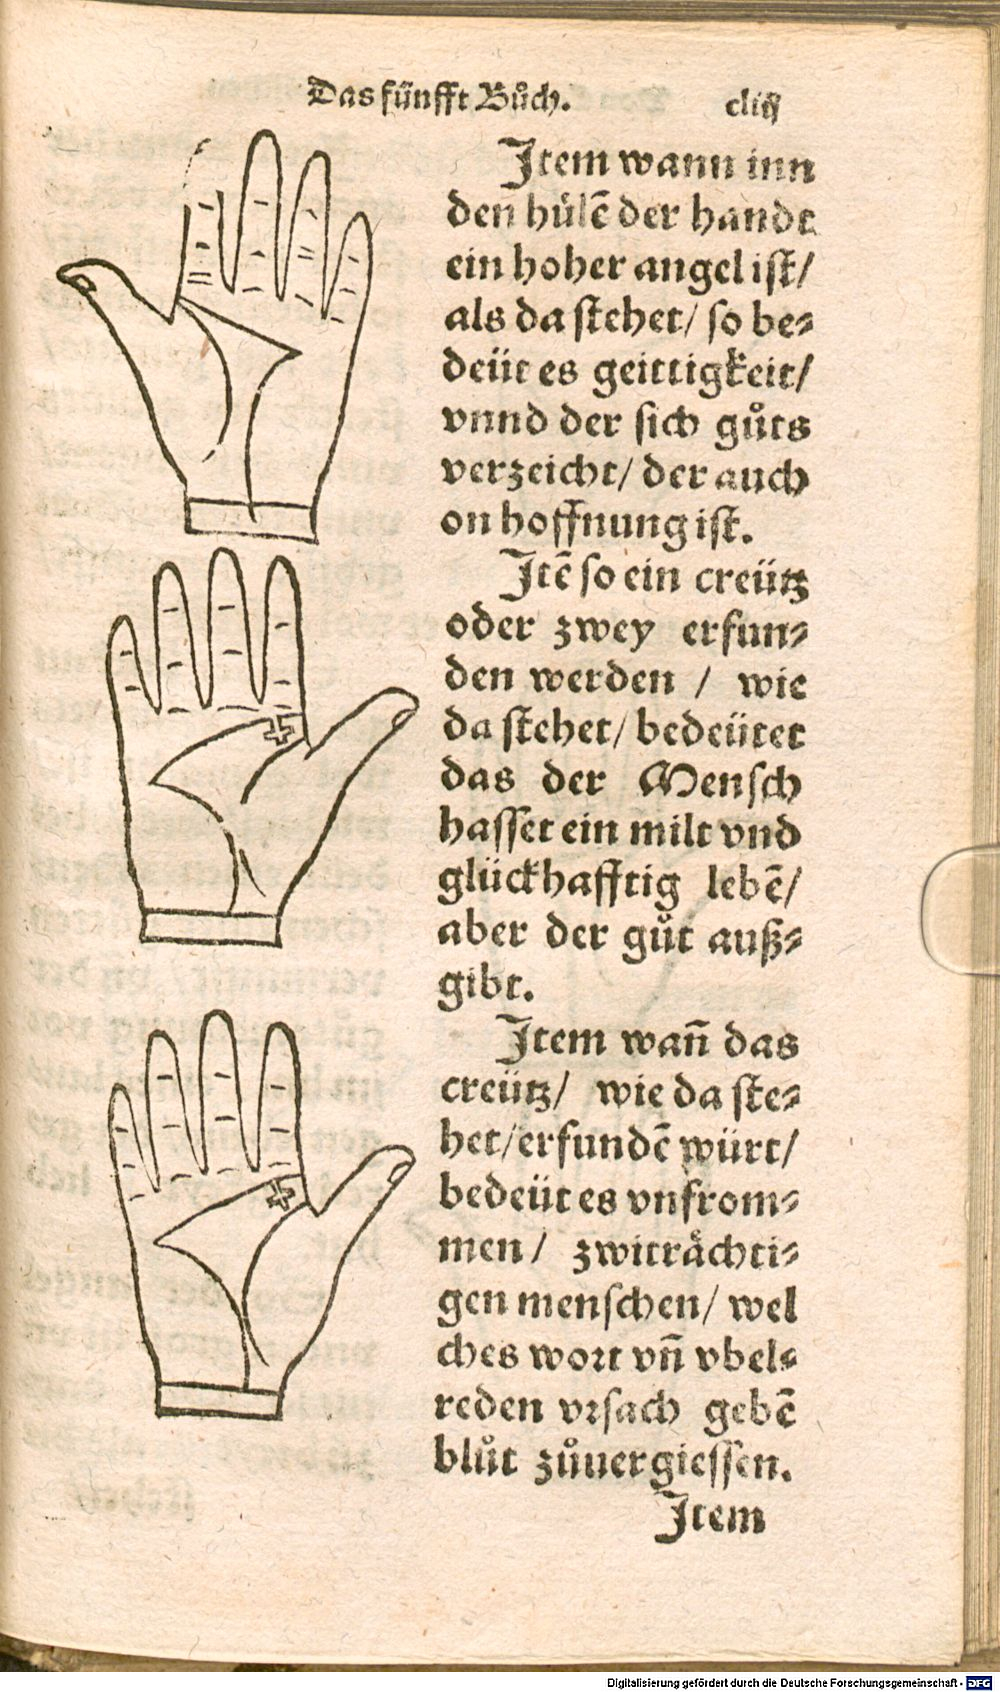 Das fünfft Bůch. cliij
Item wann inn
den hülē der handt
ein hoher angel ist/
als da stehet/ so be⸗
deüt es geittigkeit/
vnnd der sich gůts
verzeicht/ der auch
on hoffnung ist.
Itē so ein creütz
oder zwey erfun⸗
den werden / wie
da stehet/ bedeütet
das der Mensch
hasset ein milt vnd
glückhafftig lebē/
aber der gůt auß⸗
gibt.
Item wañ das
creütz/ wie da ste⸗
het/ erfundē würt/
bedeüt es vnfrom⸗
men / zwitråchti⸗
gen menschen/ wel
ches wort vñ vbel⸗
reden vrsach gebē
blůt zůuergiessen.
Item
Digitalisierung gefördert durch die Deutsche Forschungsgemeinschaft - DFG